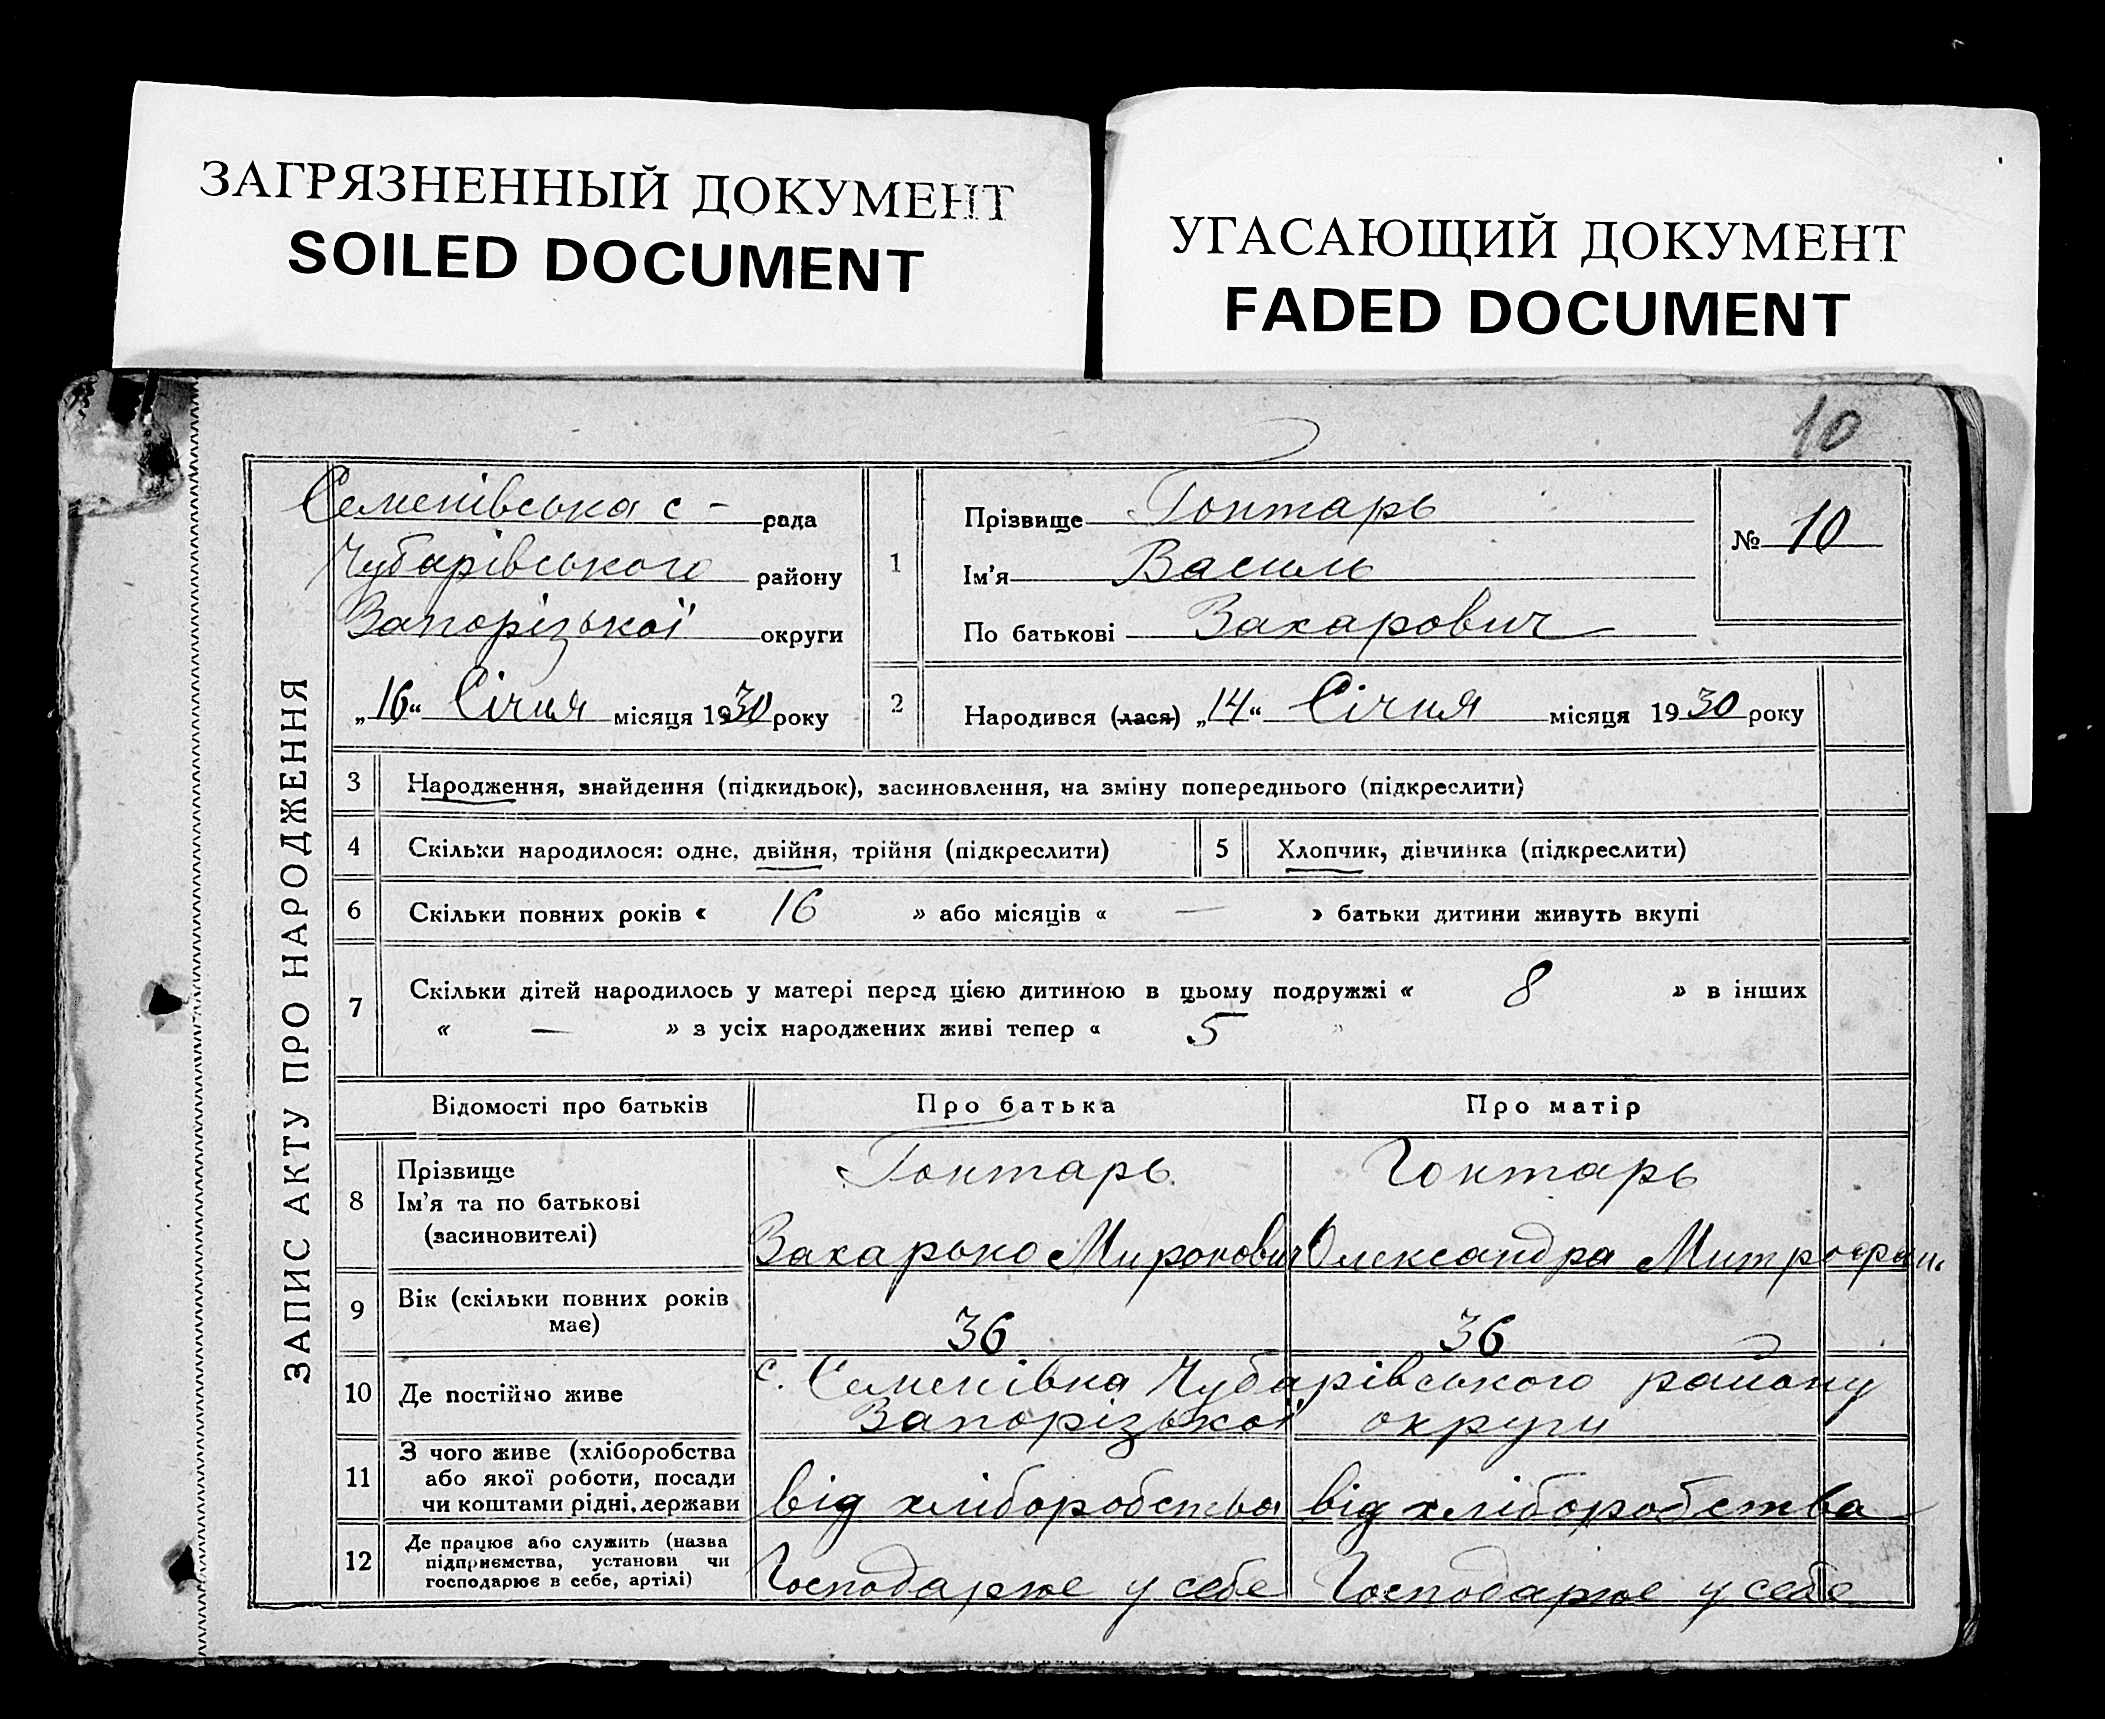 ЗАГРЯЗНЕННЫЙ ДОКУМЕНТ
SOILED DOCUMENT
УГАСАЮЩИЙ ДОКУМЕНТ
FADED DOCUMENT
10
ЗАПИС АКТУ ПРО НАРОДЖЕННЯ
Семенівська с - рада
Чубарівського району
Запорізької округи
„16“ Січня місяця 1930 року
1
Прізвище Гонтарь
Ім'я Василь
По батькові Захарович
№ 10
2 Народився (лася) „14“ Січня місяця 1930 року
3 Народження, знайдення (підкидьок), засиновлення, на зміну попереднього (підкреслити)
4 Скільки народилося: одне, двійня, трійня (підкреслити) 5 Хлопчик, дівчинка (підкреслити)
6 Скільки повних років « 16 » або місяців « — » батьки дитини живуть вкупі
7 Скільки дітей народилось у матері перед цією дитиною в цьому подружжі « 8 » в інших
« — » з усіх народжених живі тепер « 5 »
Відомості про батьків Про батька Про матір
8 Прізвище Гонтарь Гонтарь
Ім'я та по батькові
(засиновителі) Захарько Миронович Олександра Митрофан.
9 Вік (скільки повних років
має) 36 36
10 Де постійно живе с. Семенівка Чубарівського району
Запорізької округи
11 З чого живе (хліборобства
або якої роботи, посади
чи коштами рідні, держави від хліборобства від хліборобства
12 Де працює або служить (назва
підприємства, установи чи
господарює в себе, артілі) Господарює у себе Господарює у себе